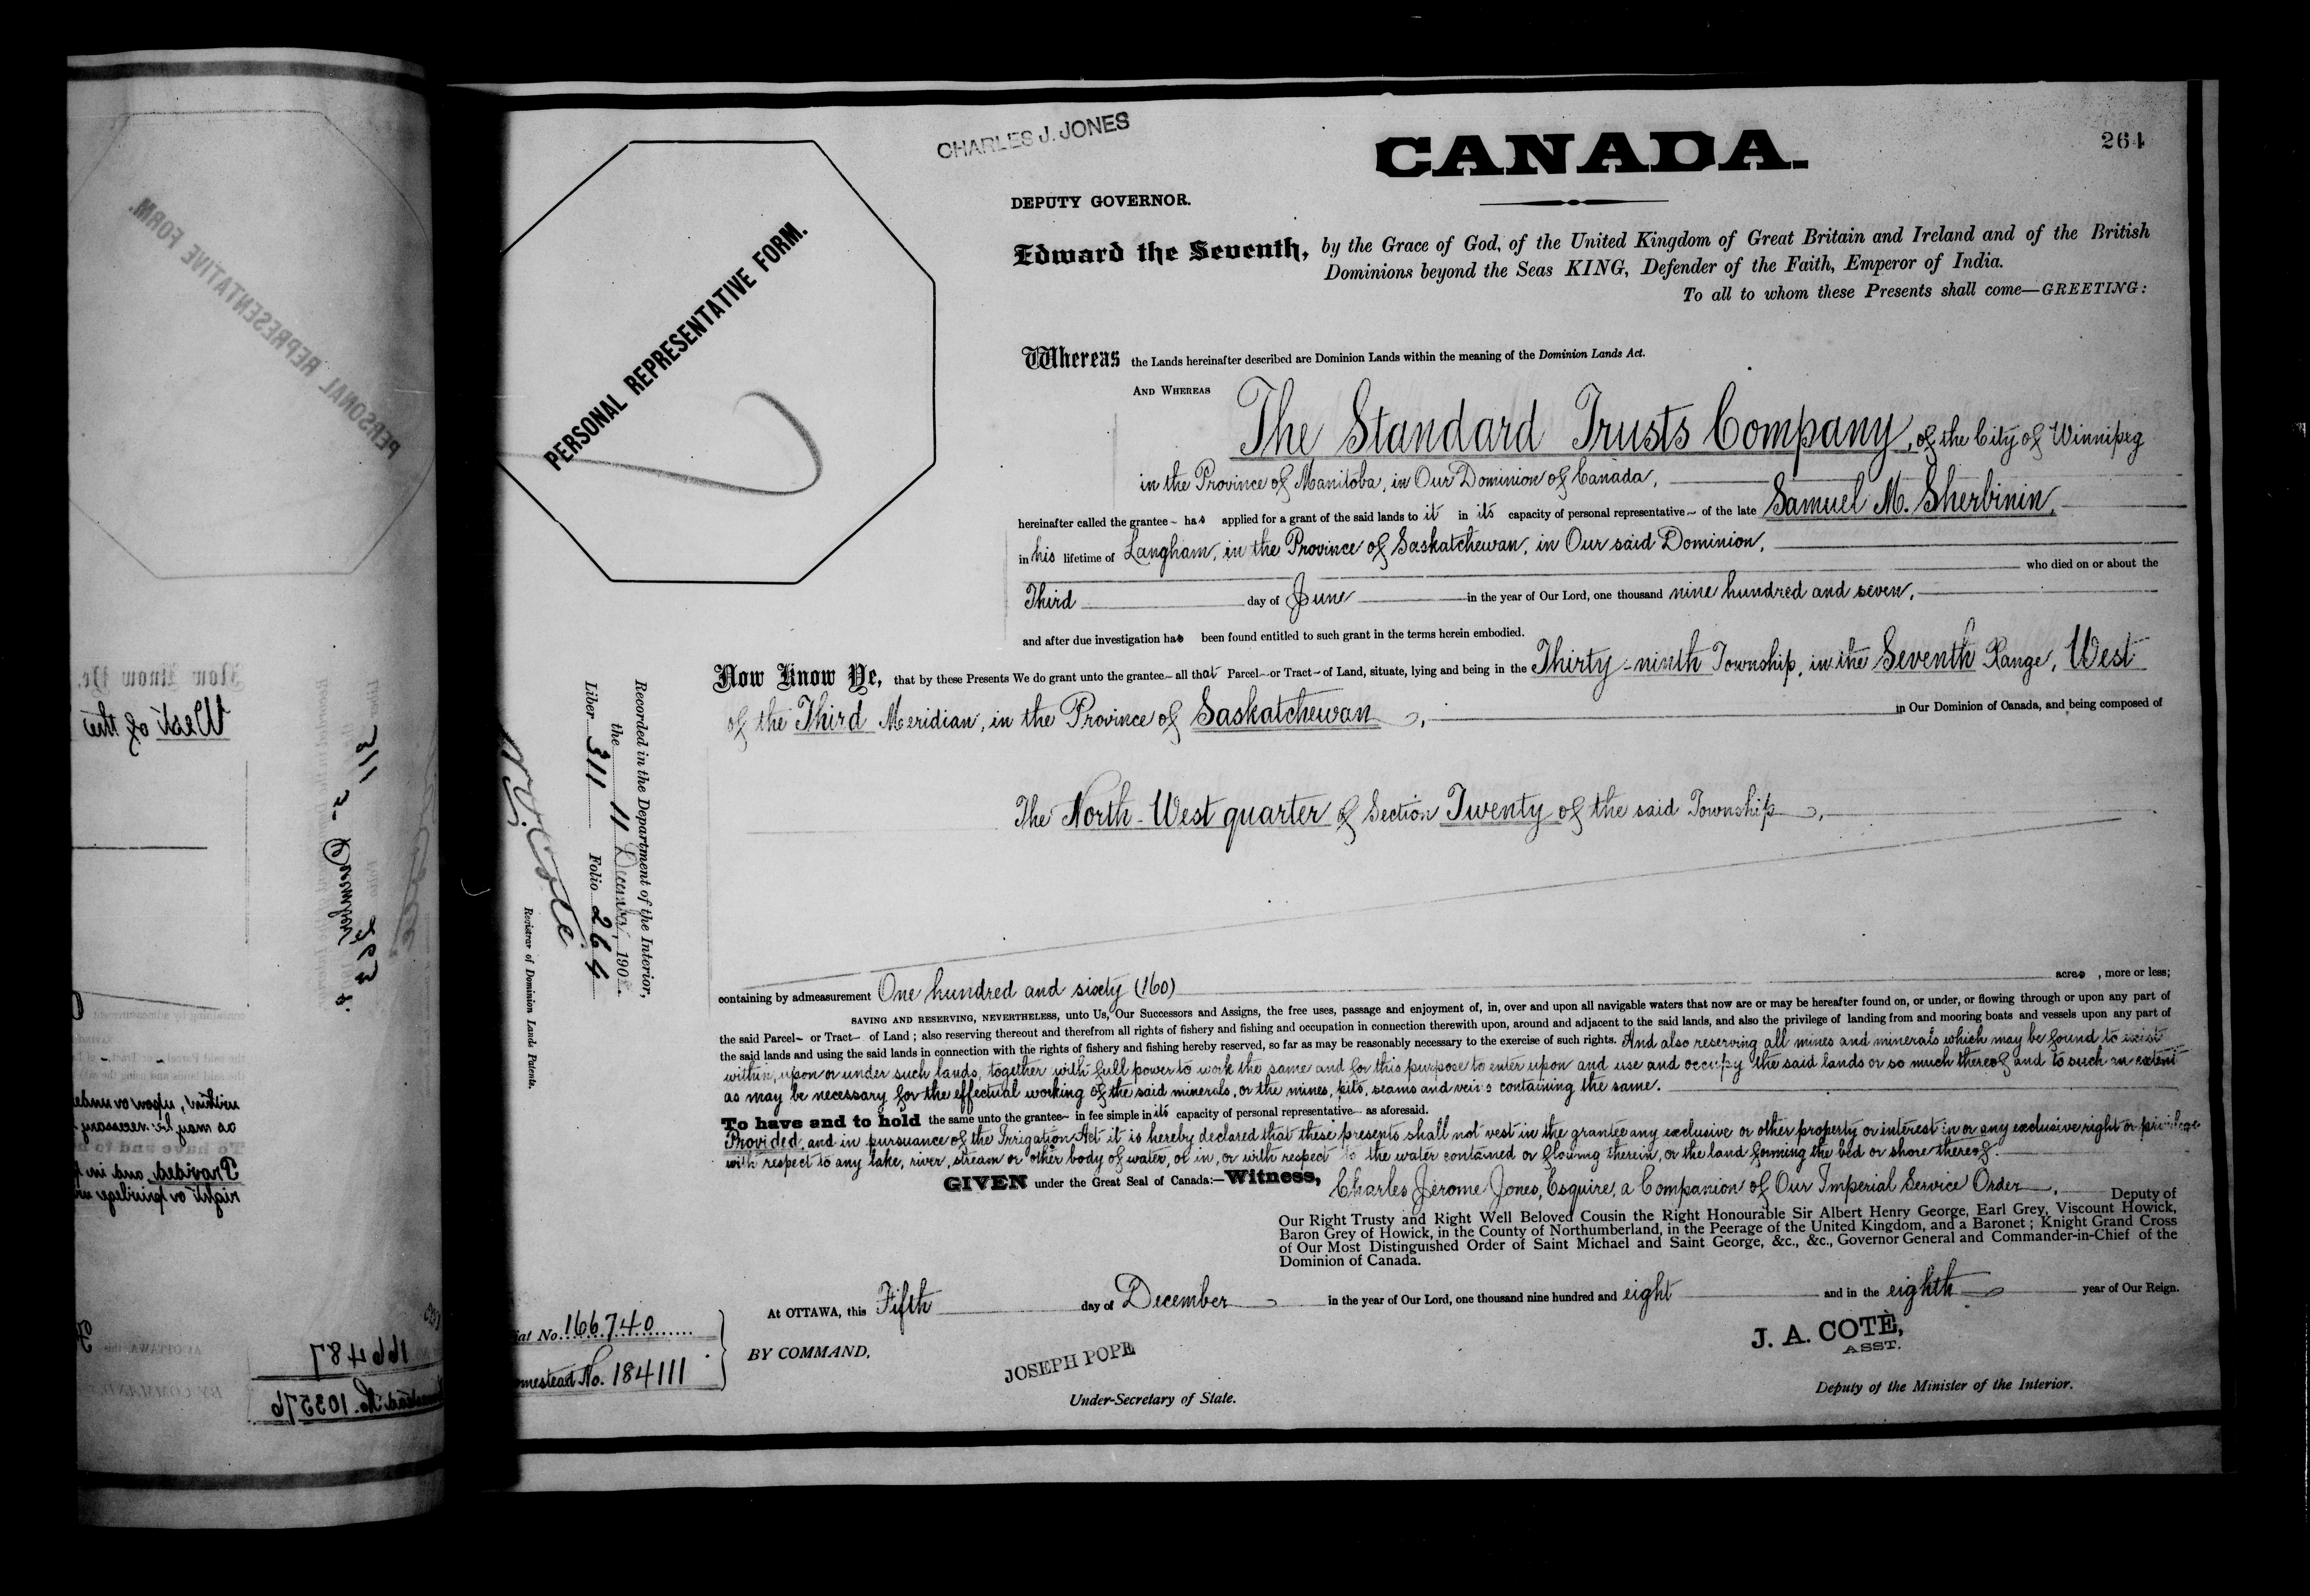 CHARLES J. JONES
CANADA.
264
DEPUTY GOVERNOR.
PERSONAL REPRESENTATIVE FORM.
Edward the Seventh, by the Grace of God, of the United Kingdom of Great Britain and Ireland and of the British
Dominions beyond the Seas KING, Defender of the Faith, Emperor of India.
To all to whom these Presents shall come—GREETING:
Whereas the Lands hereinafter described are Dominion Lands within the meaning of the Dominion Lands Act.
AND WHEREAS
The Standard Trusts Company, of the City of Winnipeg
in the Province of Manitoba, in Our Dominion of Canada,
hereinafter called the grantee has applied for a grant of the said lands to it in its capacity of personal representative of the late Samuel M. Sherbinin,
in his lifetime of Langham, in the Province of Saskatchewan, in Our said Dominion,
who died on or about the
Third day of June in the year of Our Lord, one thousand nine hundred and seven,
and after due investigation has been found entitled to such grant in the terms herein embodied.
Now Know Ye, that by these Presents We do grant unto the grantee all that Parcel or Tract of Land, situate, lying and being in the Thirty-ninth Township, in the Seventh Range, West
of the Third Meridian, in the Province of Saskatchewan, in Our Dominion of Canada, and being composed of
The North-West quarter of Section Twenty of the said Township,
containing by admeasurement One hundred and sixty (160) acres, more or less;
SAVING AND RESERVING, NEVERTHELESS, unto Us, Our Successors and Assigns, the free uses, passage and enjoyment of, in, over and upon all navigable waters that now are or may be hereafter found on, or under, or flowing through or upon any part of
the said Parcel or Tract of Land; also reserving thereout and therefrom all rights of fishery and fishing and occupation in connection therewith upon, around and adjacent to the said lands, and also the privilege of landing from and mooring boats and vessels upon any part of
the said lands and using the said lands in connection with the rights of fishery and fishing hereby reserved, so far as may be reasonably necessary to the exercise of such rights. And also reserving all mines and minerals which may be found to exist
within, upon or under such lands, together with full power to work the same and for this purpose to enter upon and use and occupy the said lands or so much thereof and to such an extent
as may be necessary for the effectual working of the said minerals, or the mines, pits, seams and veins containing the same.
To have and to hold the same unto the grantee in fee simple in its capacity of personal representative as aforesaid.
Provided, and in pursuance of the Irrigation Act it is hereby declared that these presents shall not vest in the grantee any exclusive or other property or interest in or any exclusive right or privilege
with respect to any lake, river, stream or other body of water, or in, or with respect to the water contained or flowing therein, or the land forming the bed or shore thereof.
GIVEN under the Great Seal of Canada:—Witness, Charles Jerome Jones, Esquire, a Companion of Our Imperial Service Order, Deputy of
Our Right Trusty and Right Well Beloved Cousin the Right Honourable Sir Albert Henry George, Earl Grey, Viscount Howick,
Baron Grey of Howick, in the County of Northumberland, in the Peerage of the United Kingdom, and a Baronet; Knight Grand Cross
of Our Most Distinguished Order of Saint Michael and Saint George, &c., &c., Governor General and Commander-in-Chief of the
Dominion of Canada.
At OTTAWA, this Fifth day of December in the year of Our Lord, one thousand nine hundred and eight and in the eighth year of Our Reign.
BY COMMAND,
JOSEPH POPE
Under-Secretary of State.
J. A. COTÉ,
ASST.
Deputy of the Minister of the Interior.
Recorded in the Department of the Interior,
the 11 December, 190
Liber 311 Folio 264
Registrar of Dominion Lands Patents.
No. 166740
No. 184111
West of the
311
263
Provided, and in
right or privilege
166487
No. 103576